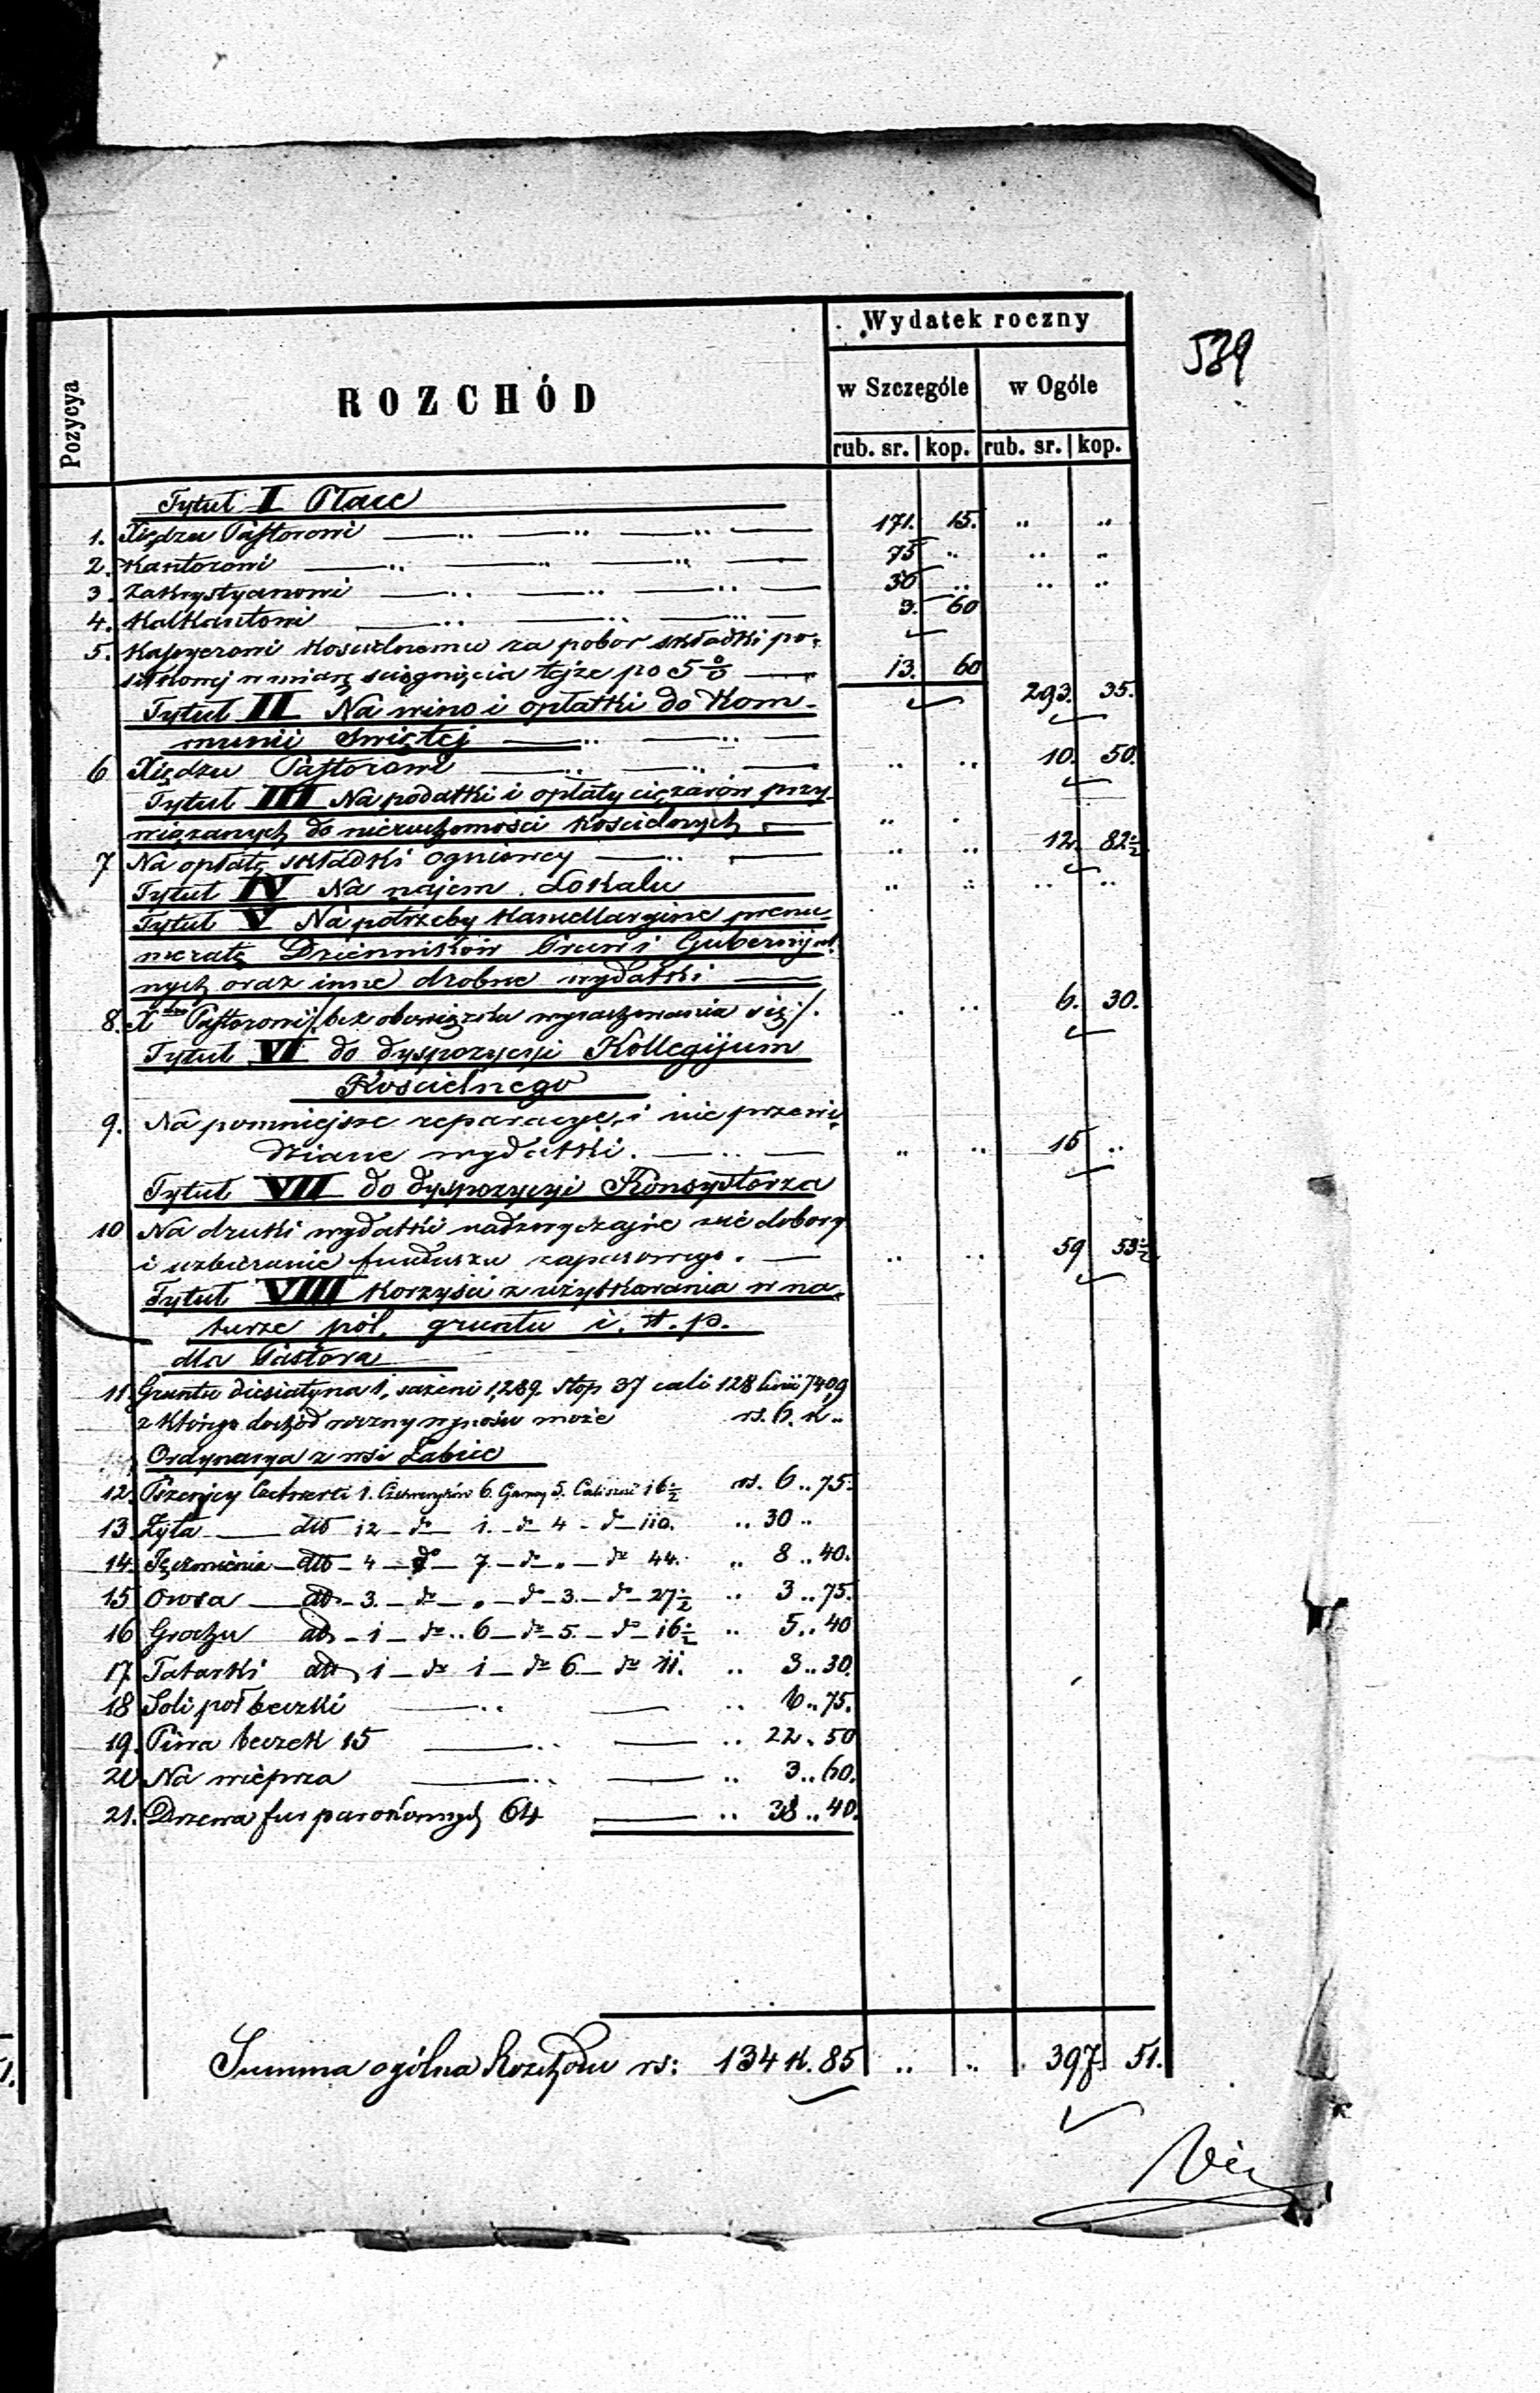 539
Wydatek roczny
Pozycya
ROZCHÓD
w Szczególe w Ogóle
rub. sr. kop. rub. sr. kop.
Tytuł I Płace
1. Xiędzu Pastorowi 171. 15. " "
2. Kantorowi 75 " " "
3. Zakrystyanowi 30 " " "
4. Kalkantowi 3. 60
5. Kassyerowi Kościelnemu za pobor składki po-
siłkowej w miarę ściągnięcia tejże po 5 % 13. 60 293. 35.
Tytuł II Na wino i opłatki do Kom-
munii Świętej
6 Xiędzu Pastorowi " " 10. 50.
Tytuł III Na podatki i opłaty ciężarów przy-
wiązanych do nieruchomości Kościelnych " "
7 Na opłatę składki ogniowej " " 12. 82½
Tytuł IV Na najem Lokalu " " " "
Tytuł V Na potrzeby Kancellaryjne prenu-
meratę Dzienników Praw i Gubernijal-
nych oraz inne drobne wydatki
8. Xdzu Pastorowi /: bez obowiązku wyrachowania się :/. " " 6. 30.
Tytuł VI do dyspozycyi Kollegijum
Kościelnego
9. Na pomniejsze reparacye, i nie przewi-
dziane wydatki. " " 15 "
Tytuł VII do dyspozycyi Konsystorza
10 Na druki wydatki nadzwyczajne nie dobory
i uzbieranie funduszu zapasowego. " " 59 53½
Tytuł VIII Korzyści z użytkowania w na-
turze pól, gruntu i. t. p.
dla Pastora
11. Gruntu diesiatyna 1, sażeni 1,289. stop 37 cali 128 linii 740,9
z którego dochód roczny wynosić może rs. 6. k "
Ordynarya z wsi Żabiec
12. Pszenicy Czetwerti 1. Czetweryków 6. Garncy 5. Cali sześć 16½ rs. 6 " 75.
13. Żyta dtto 12 - do - 1. - do 4 - do - 110. " 30 "
14. Jęczmienia - dtto - 4 - do - 7. - do - " - do 44. " 8 " 40.
15 Owsa - dtto - 3. - do - " - do - 3. - do - 27½ " 3 " 75.
16 Grochu dtto - 1 - do " 6 - do - 5. - do - 16½ " 5 " 40
17. Tatarki dtto, 1 - do 1 - do 6 - do 11. " 3 " 30.
18 Soli pół beczki " 6 " 75.
19. Piwa beczek 15 " 22 " 50
20 Na wieprza " 3 " 60.
21. Drzewa fur parokonnych 64 " 38 " 40.
Summa ogólna Rozchodu rs: 134 k. 85 " " 397. 51.